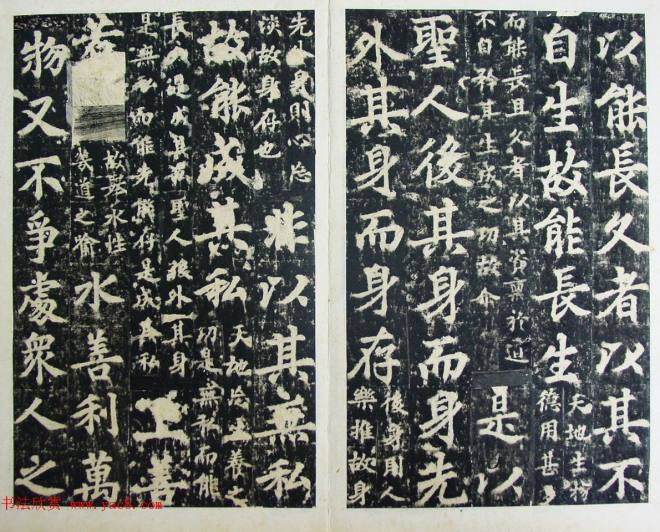 以能長久者以其不
自生故能長生
天地生物
德用甚
而能長且久者以其資稟於道
不自矜其生成之功故介
是以
聖人後其身而身先
外其身而身存
後身則人
樂推故身
先外身則心恬
淡故身存也
非以其無私
故能成其私
天地生養之
功是無私而能
長久是成其私聖人後外其身
是無私而能先能存是成其私
上善
若
水性
道之喻
水善利萬
物又不爭處眾人之
书法欣赏 www.yac8.com